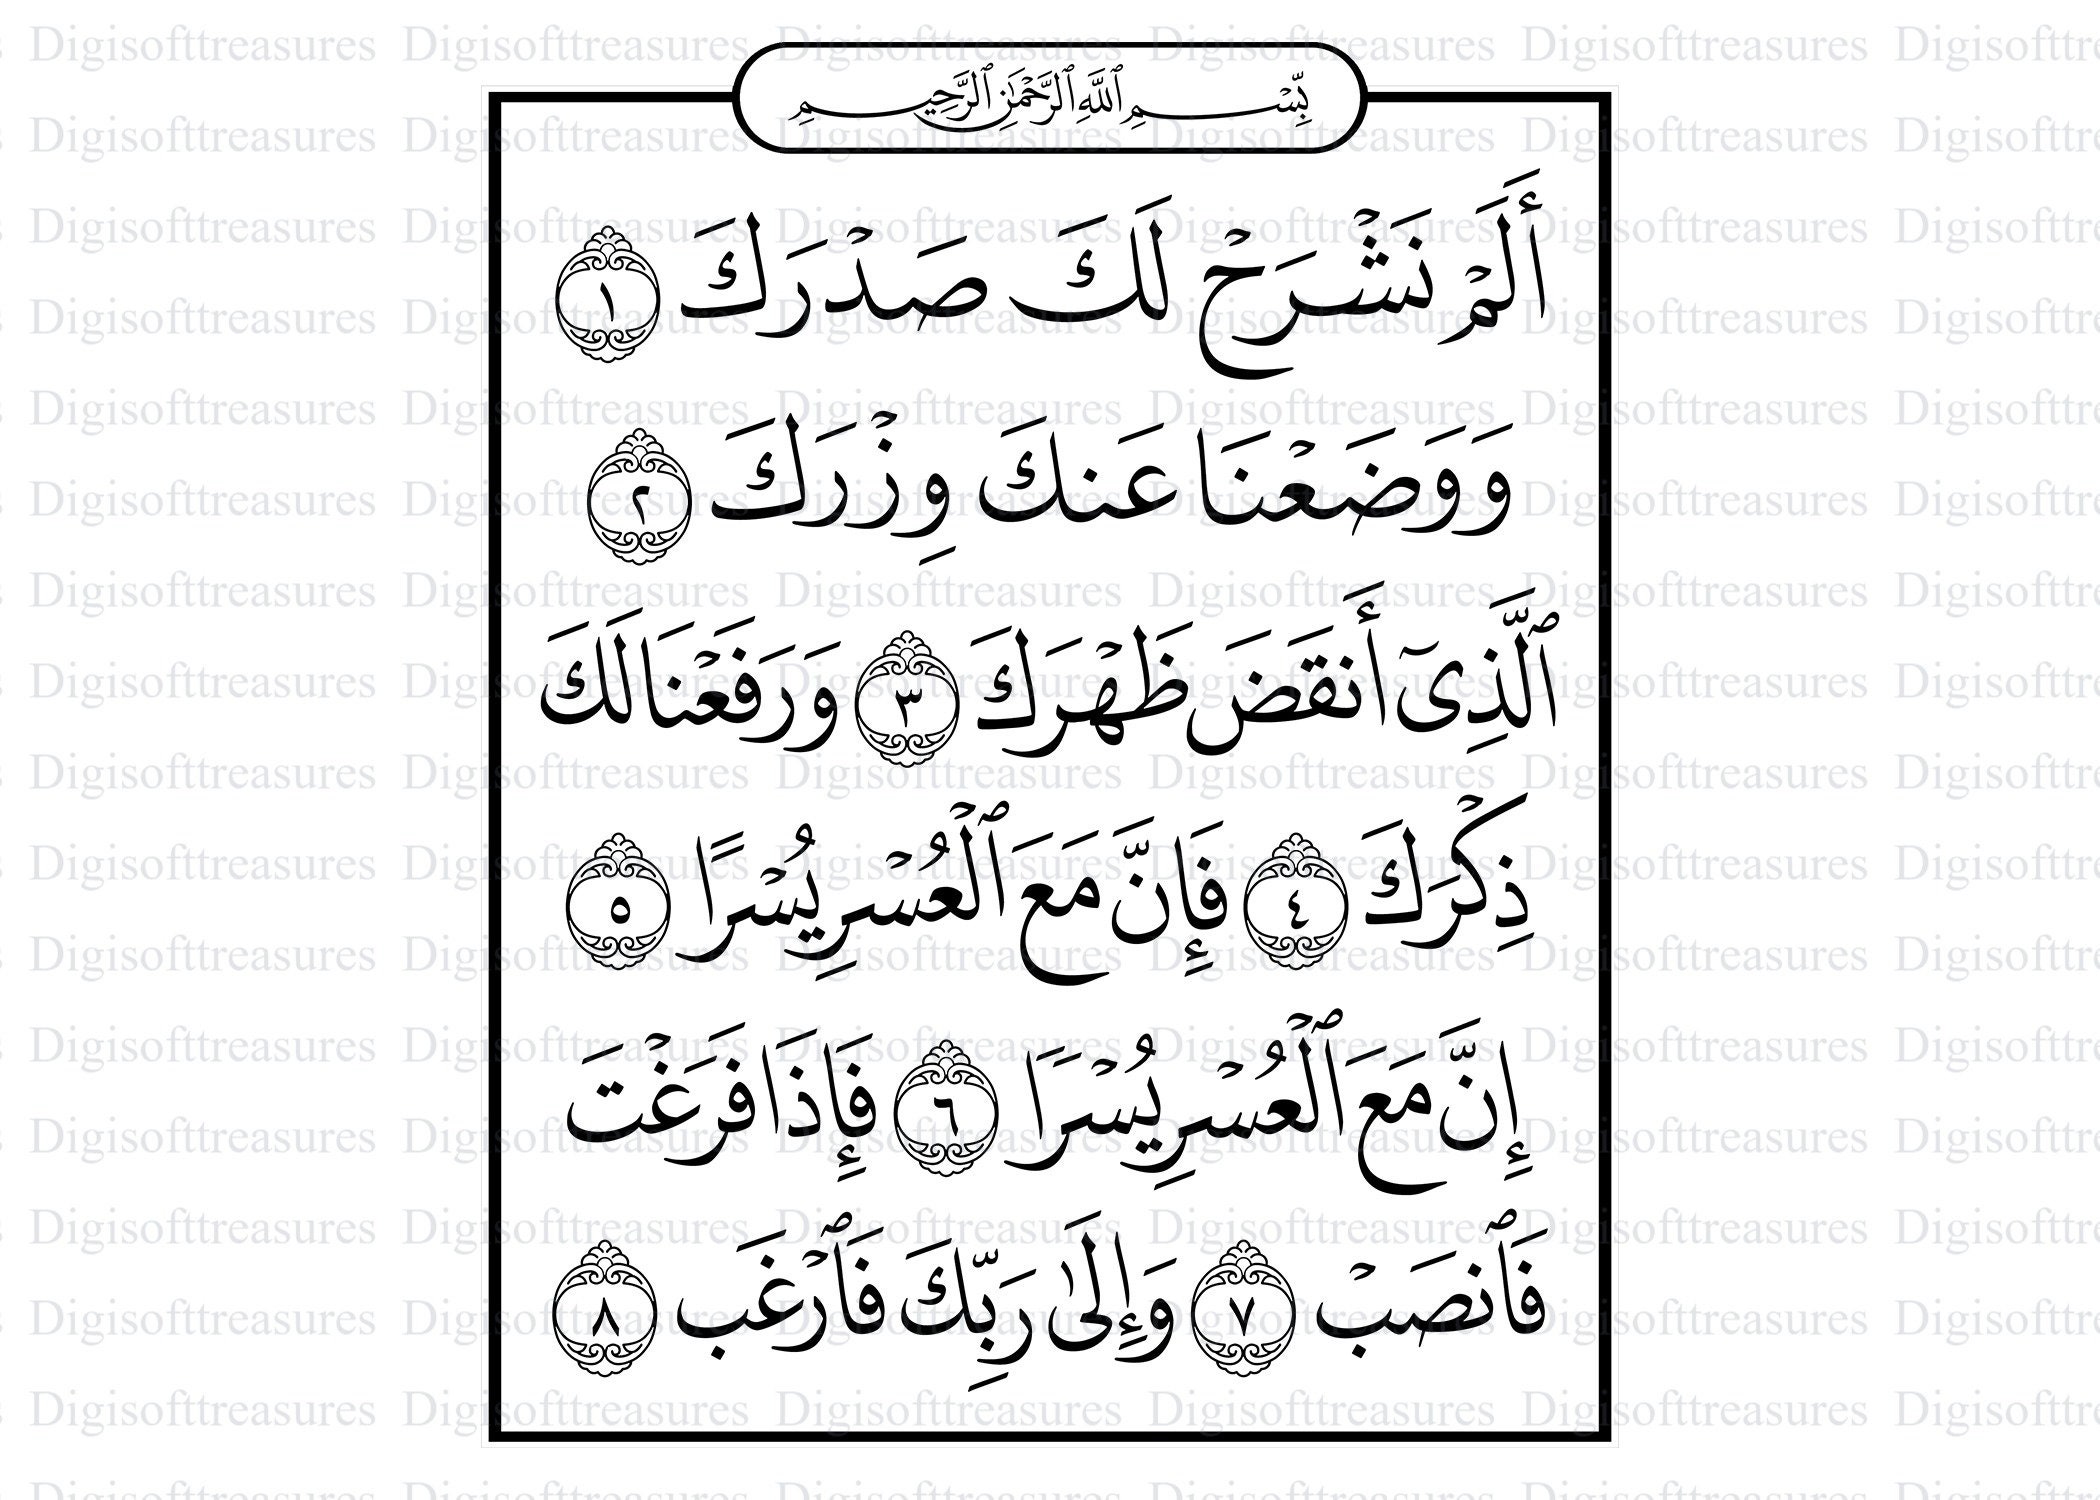 بِّسْمِ ٱللَّهِ ٱلرَّحْمَٰنِ ٱلرَّحِيمِ
أَلَمْ نَشْرَحْ لَكَ صَدْرَكَ ١
وَوَضَعْنَا عَنكَ وِزْرَكَ ٢
ٱلَّذِىٓ أَنقَضَ ظَهْرَكَ ٣ وَرَفَعْنَا لَكَ
ذِكْرَكَ ٤ فَإِنَّ مَعَ ٱلْعُسْرِ يُسْرًا ٥
إِنَّ مَعَ ٱلْعُسْرِ يُسْرًا ٦ فَإِذَا فَرَغْتَ
فَٱنصَبْ ٧ وَإِلَىٰ رَبِّكَ فَٱرْغَب ٨
Digisofttreasures